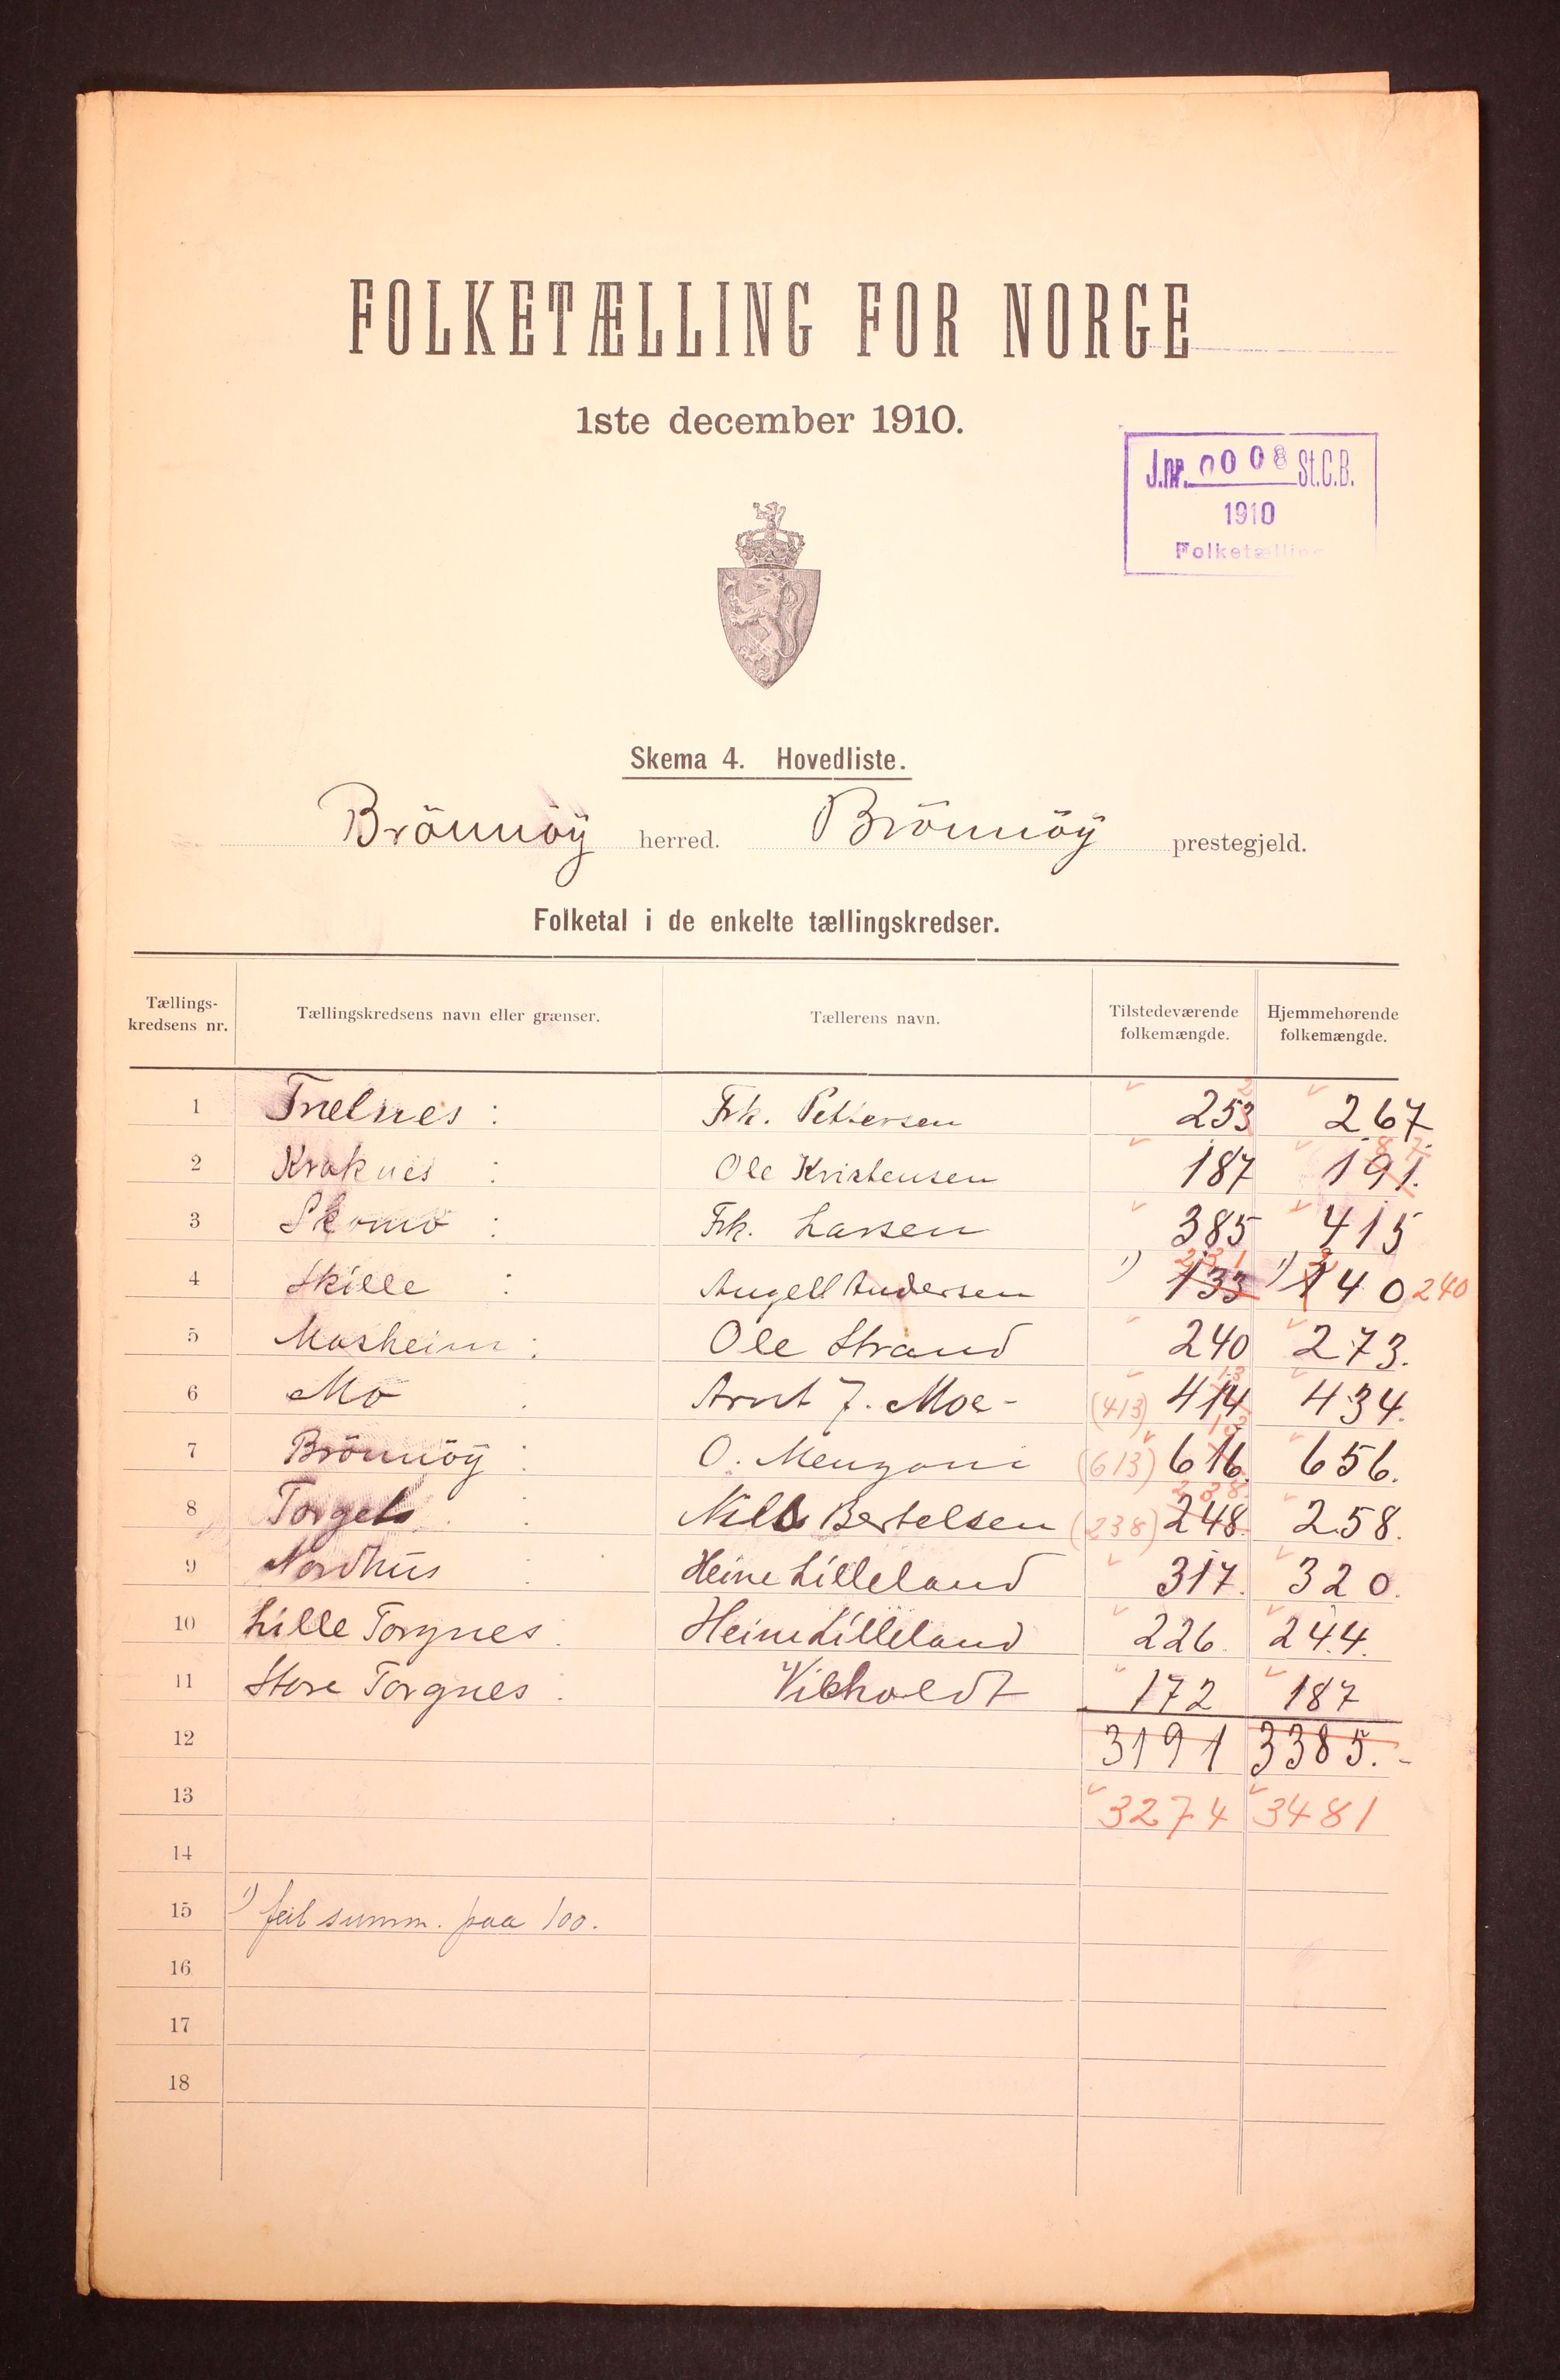 FOLKETÆLLING FOR NORGE
1ste december 1910.
J.nr. 0008 St.C.B.
1910
Folketælling
Skema 4. Hovedliste.
Brönnöÿ herred. Brönnöÿ prestegjeld.
Folketal i de enkelte tællingskredser.
Tællings-kredsens nr. Tællingskredsens navn eller grænser. Tællerens navn. Tilstedeværende folkemængde. Hjemmehørende folkemængde.
1 Trælnes : Frk. Pettersen 253 2 267
2 Kråknes : Ole Kristensen 187 191. 8 7.
3 Skomo : Frk. Larsen 385 415
4 Skille : Angell Andersen 1) 133 231 1) 140 2 240
5 Mosheim : Ole Strand 240 273.
6 Mo : Arnt J. Moe - (413) 414 13 434.
7 Brönnöÿ : O. Menzoni (613) 616. 13 656.
8 Torgets : Nils Bertelsen (238) 248. 238. 258.
9 Nordhus : Heine Lilleland 317. 320.
10 Lille Torgnes. Heine Lilleland 226. 244.
11 Store Torgnes : Vibholdt 172 187
12 3191 3385.-
13 3274 3481
14
15 1) feil summ. paa 100.
16
17
18